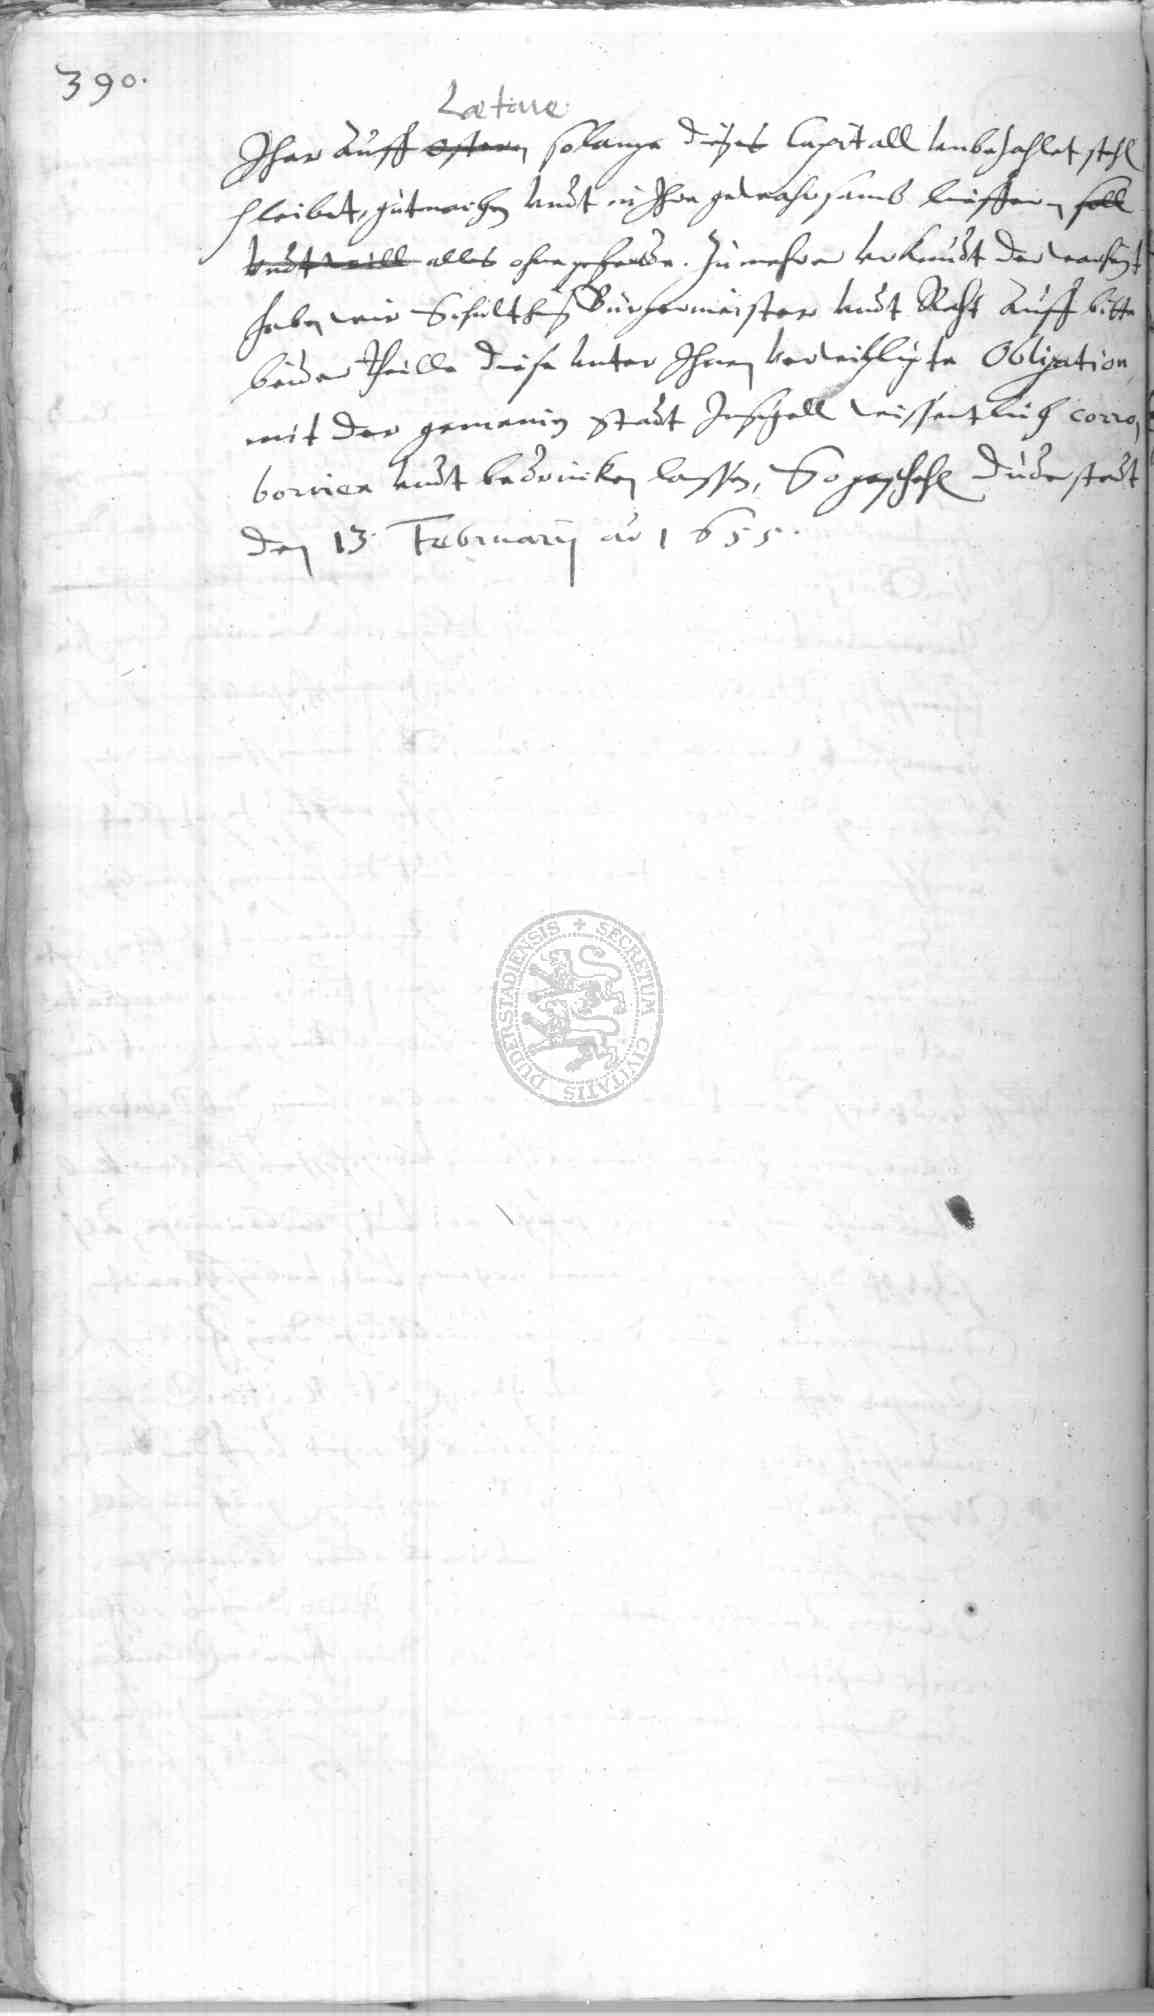 390.
Lætare
Jhar auff Ostern solange dieses Capitall unbezahlet steh
bleibet, gutmachen undt in Ihre gewahrsamb lieffern soll
undt will alles ohne gefherde. Zu mehrer uhrkundt der warheit
haben wir Schultheß Burgermeister undt Raht auff bitte
beider theille diese unter Ihnen verwilligte Obligation
mit der gemeinen Stadt Insigell wissentlich corro,
boriren undt bedrucken lassen, So geschehen Duderstadt
den 13. Februarij ao 1655.
SECRETUM CIVITATIS DUDERSTADIENSIS